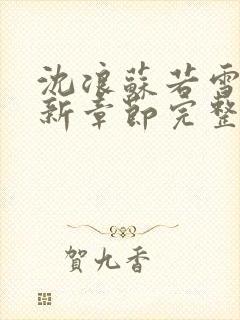 沈浪蘇若雪
新章節完整
賀九香